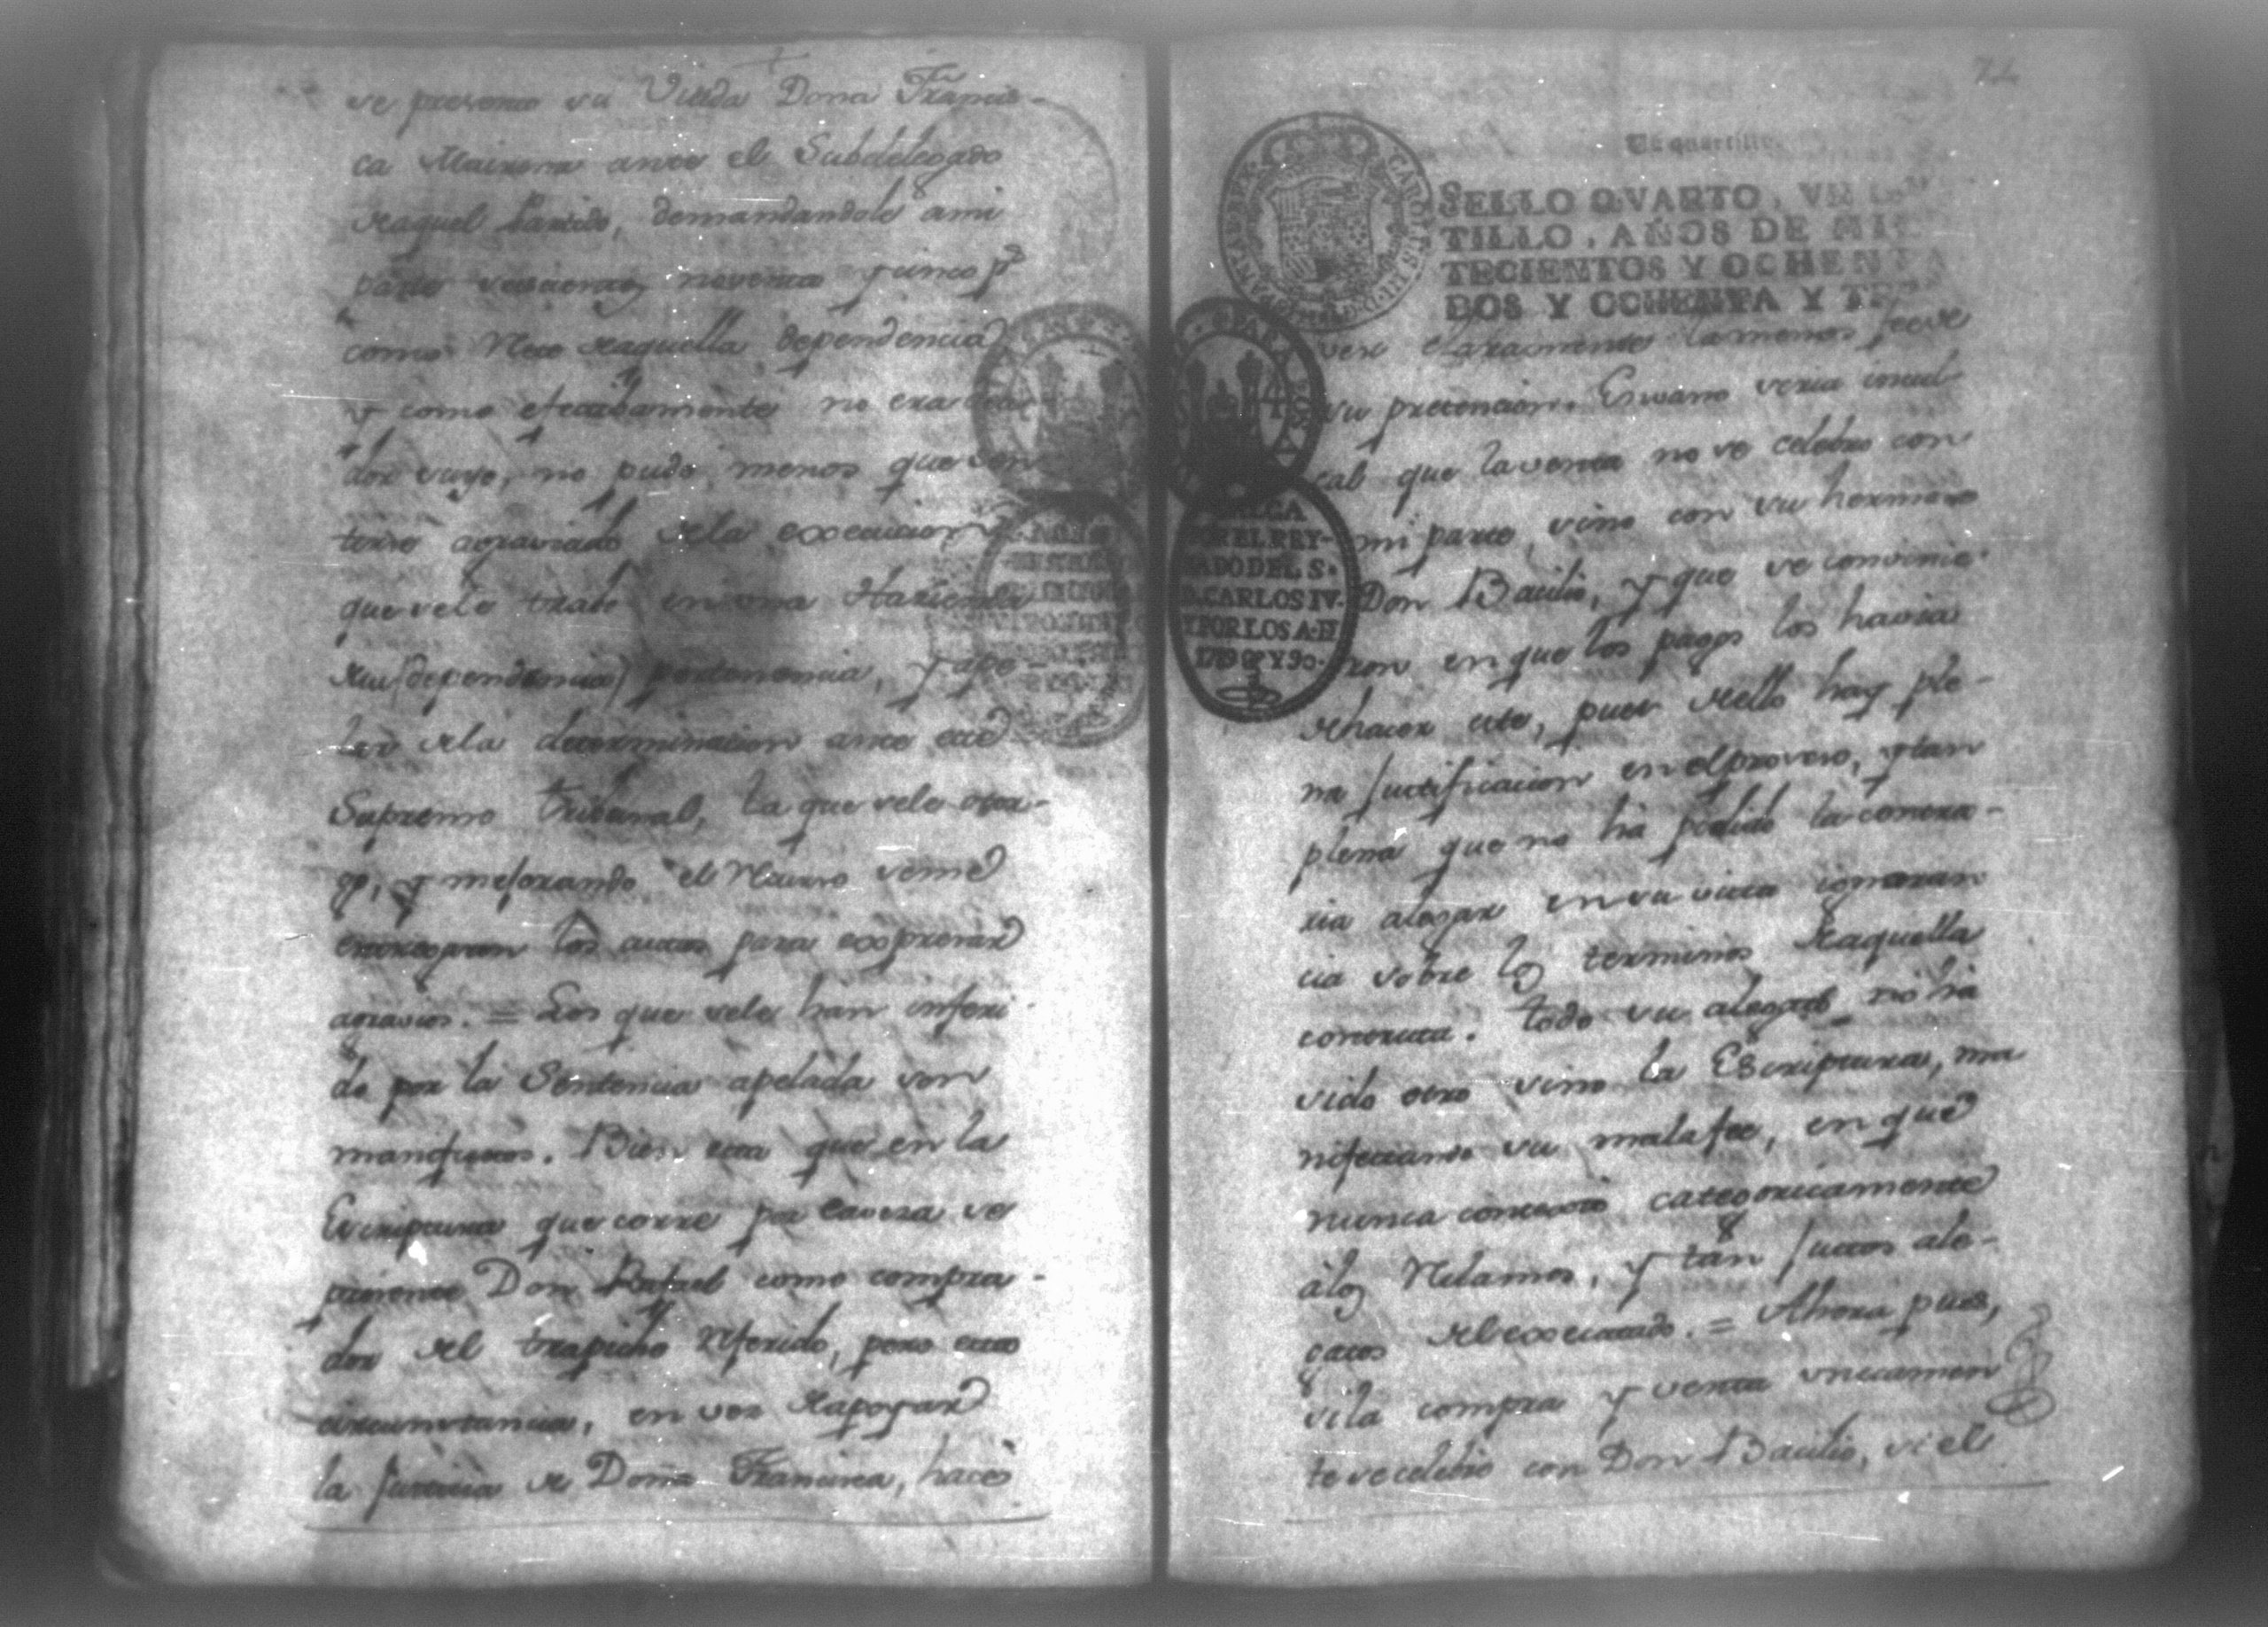 se presento su Viuda Doña Francis-
ca Mairena ante el Subdelegado
de aquel Partido, demandandole a mi
parte seiscientos noventa y cinco p.s
como Reo de aquella dependencia
y como efectivamente no era
dor suyo, no pudo menos que sen
tirse agraviado de la execucion
que se le trabó en una Hacienda
de su (dependencia) pertenencia, y ape-
lar de la determinacion ante este
Supremo Tribunal, la que se le otor-
gó, y mejorando el Recurso se me
entregaron los autos para expresar
agravios. = Los que se le han inferi-
do por la Sentencia apelada son
manifiestos. Bien esta que en la
Escriptura que corre por caveza se
presente Don Rafael como compra-
dor del trapiche referido, pero esta
circunstancia, en vez de apoyar
la justicia de Doña Francisca, hace
72
Un quartillo.
SELLO QVARTO, VN
TILLO, AÑOS DE MI
TECIENTOS Y OCHENTA
DOS Y OCHENTA Y TR
CAROLUS III D G HISPANIAR REX
VALGA
POR EL REY-
NADO DEL S.
D. CARLOS IV.
Y POR LOS A. D
1789 Y 90.
ver claramente la menos fee de
su pretencion. En vano seria incul-
cal que la venta no se celebró con
mi parte, sino con su hermano
Don Bacilio, y que se convinie-
ron en que los pagos los havia
de hacer este, pues de ello hay ple-
na justificacion en el proceso, y tan
plena que no ha podido la contra-
ria alegar en su vista ignoran
cia sobre los terminos de aquella
contrata. Todo su alegato no ha
sido otro sino la Escriptura, ma
nifestando su mala fee, en que
nunca contextó categoricamente
á los Reclamos, y tan justos ale-
gatos del executado. = Ahora pues,
si la compra y venta unicamen
te se celebró con Don Bacilio, si el